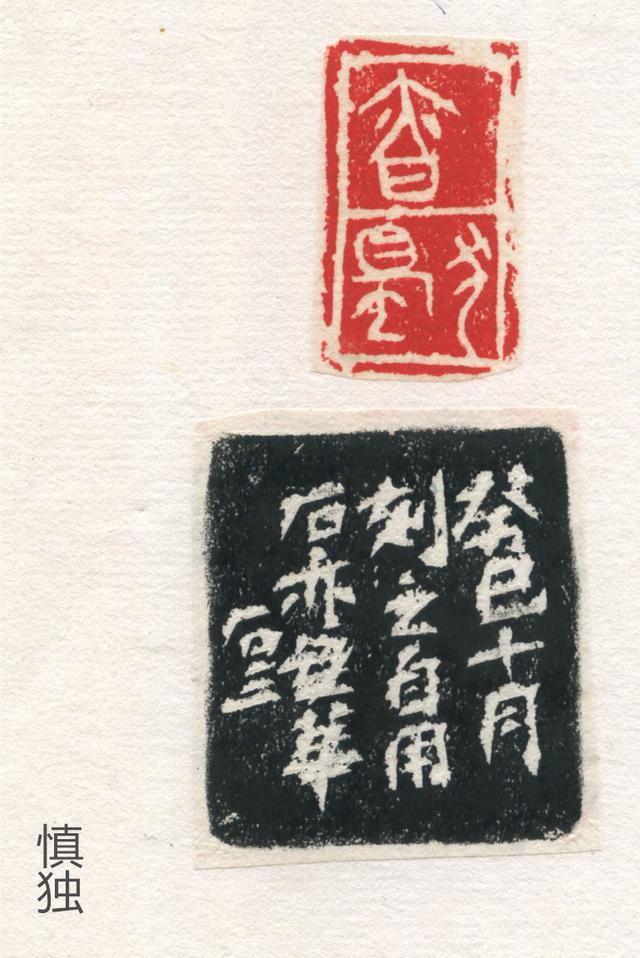 昚獨
癸巳十月
刻之自用
石亦無華
慎独